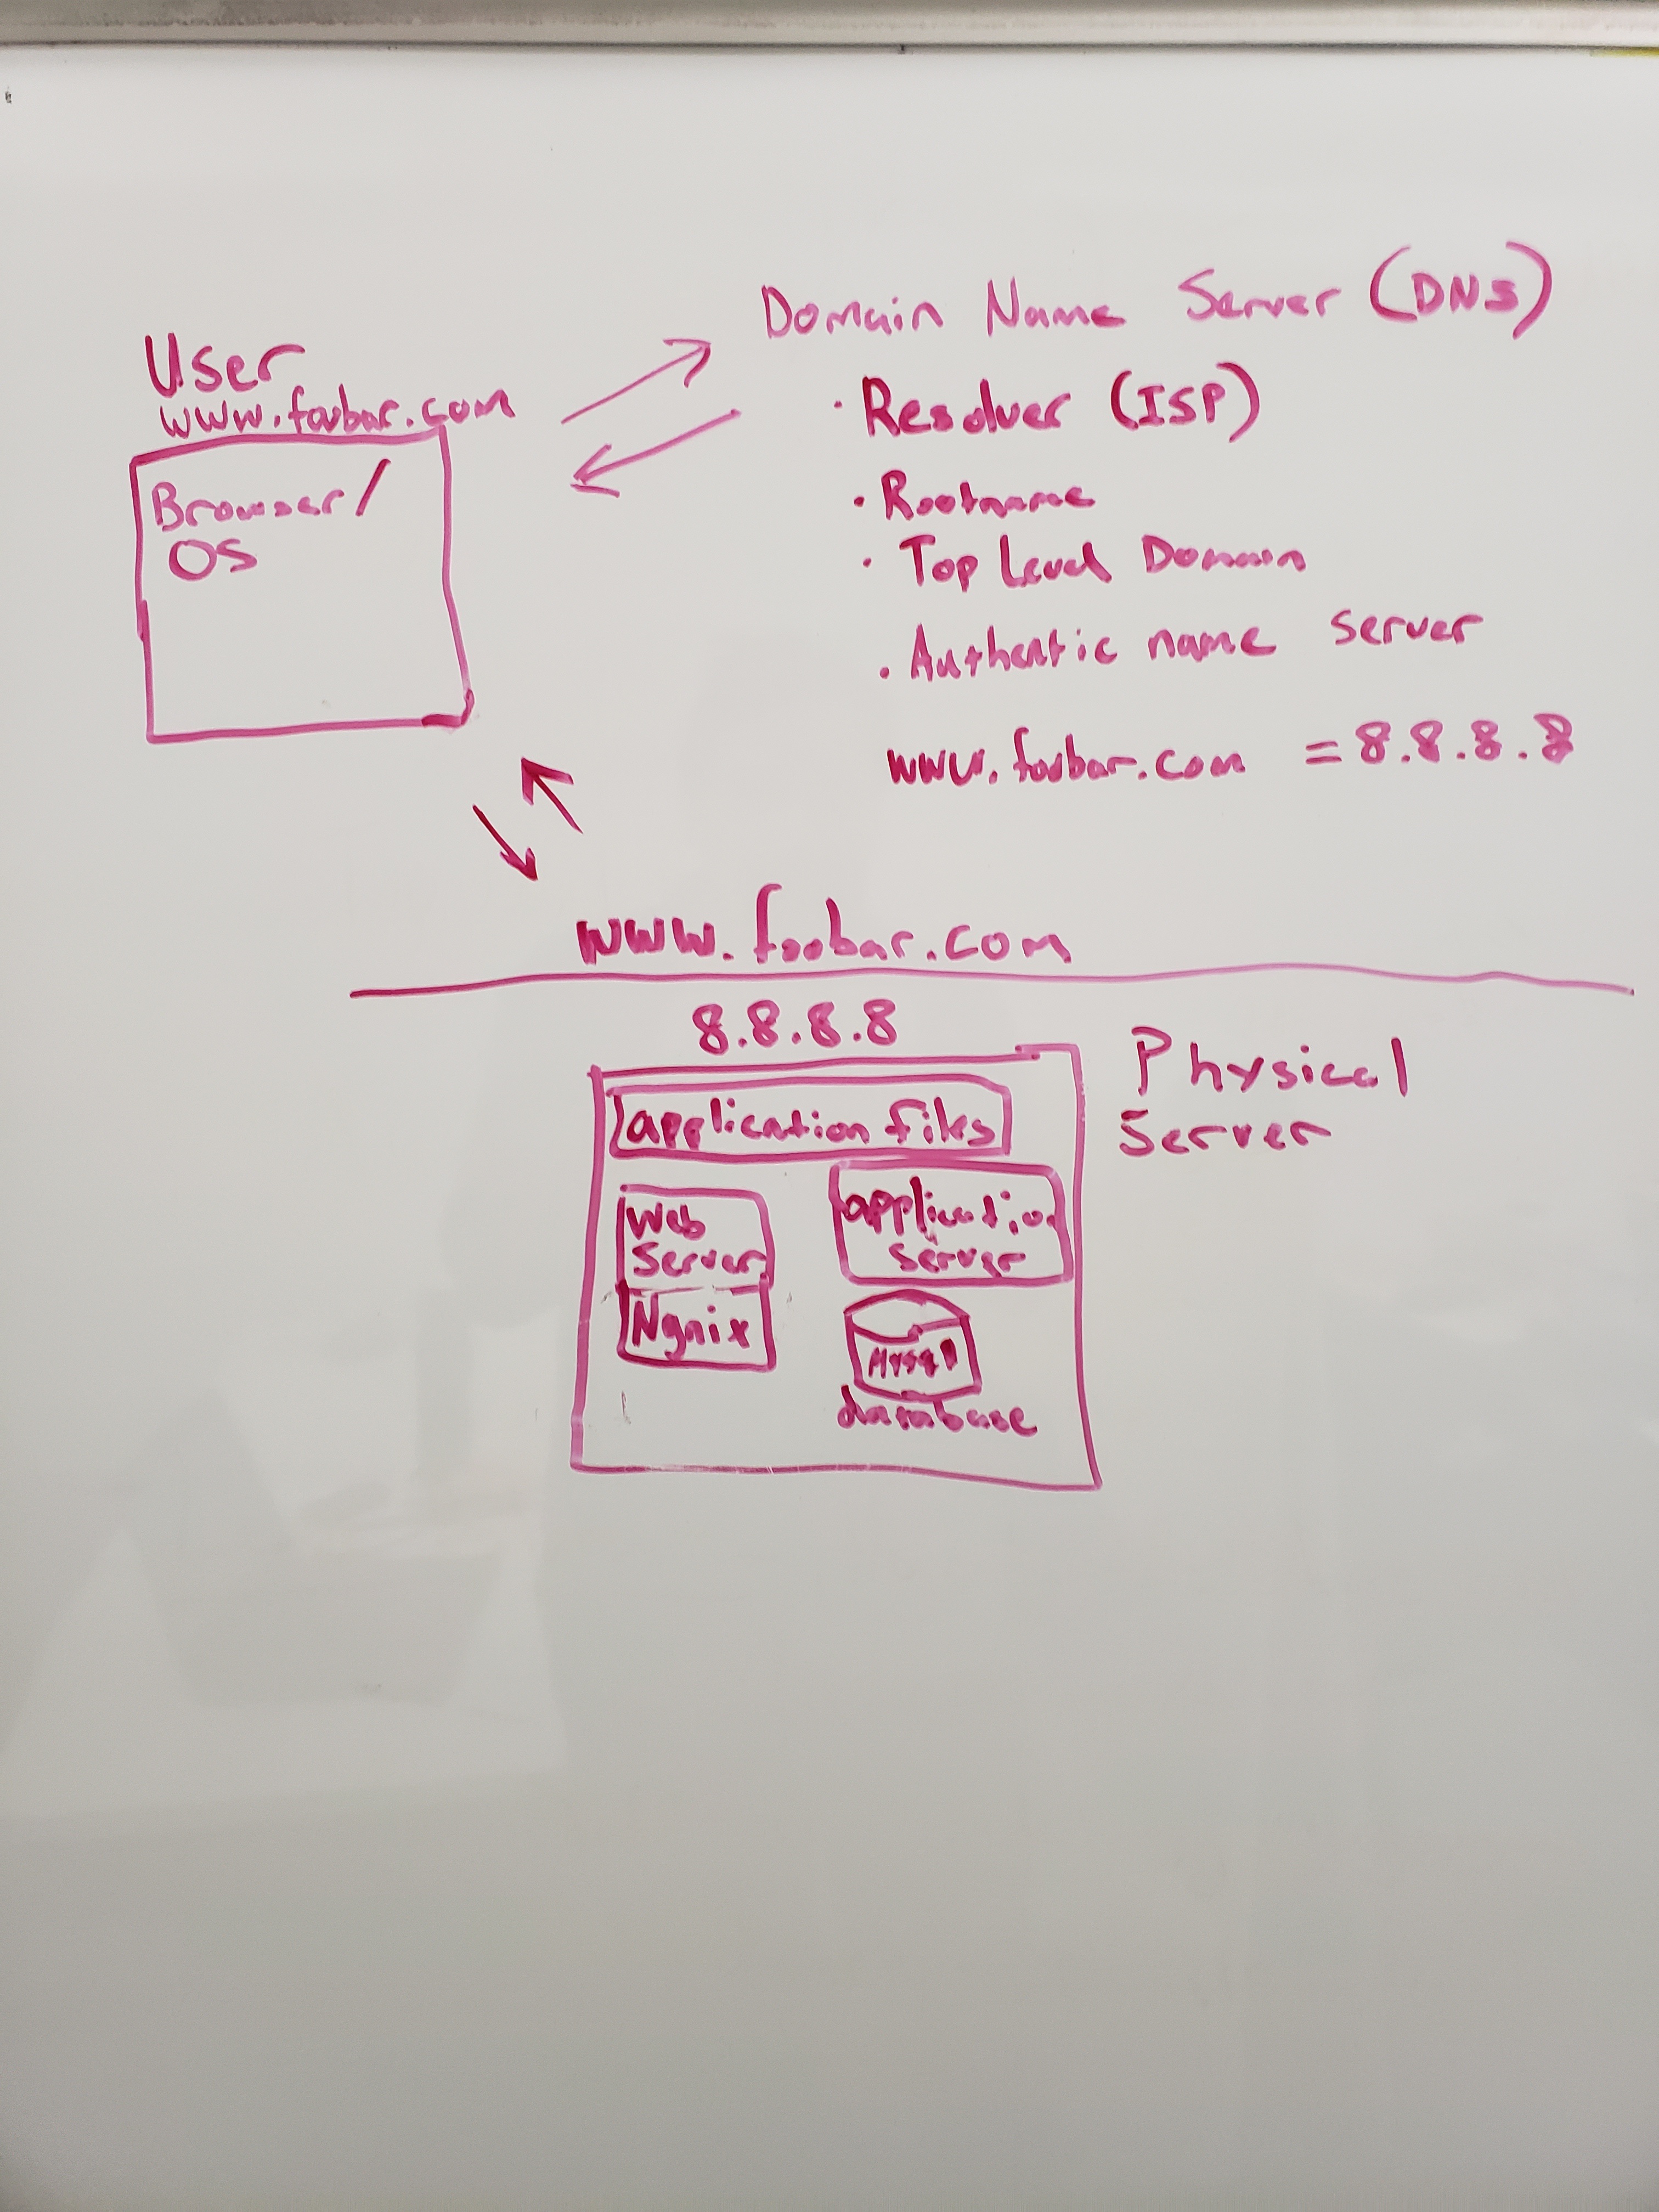 User
www.foobar.com
Browser/
OS
Domain Name Server (DNS)
· Resolver (ISP)
· Rootname
· Top Level Domain
· Authentic name server
www.foobar.com = 8.8.8.8
www.foobar.com
8.8.8.8
Physical
Server
application files
Web
Server
Ngnix
application
server
MySQL
database